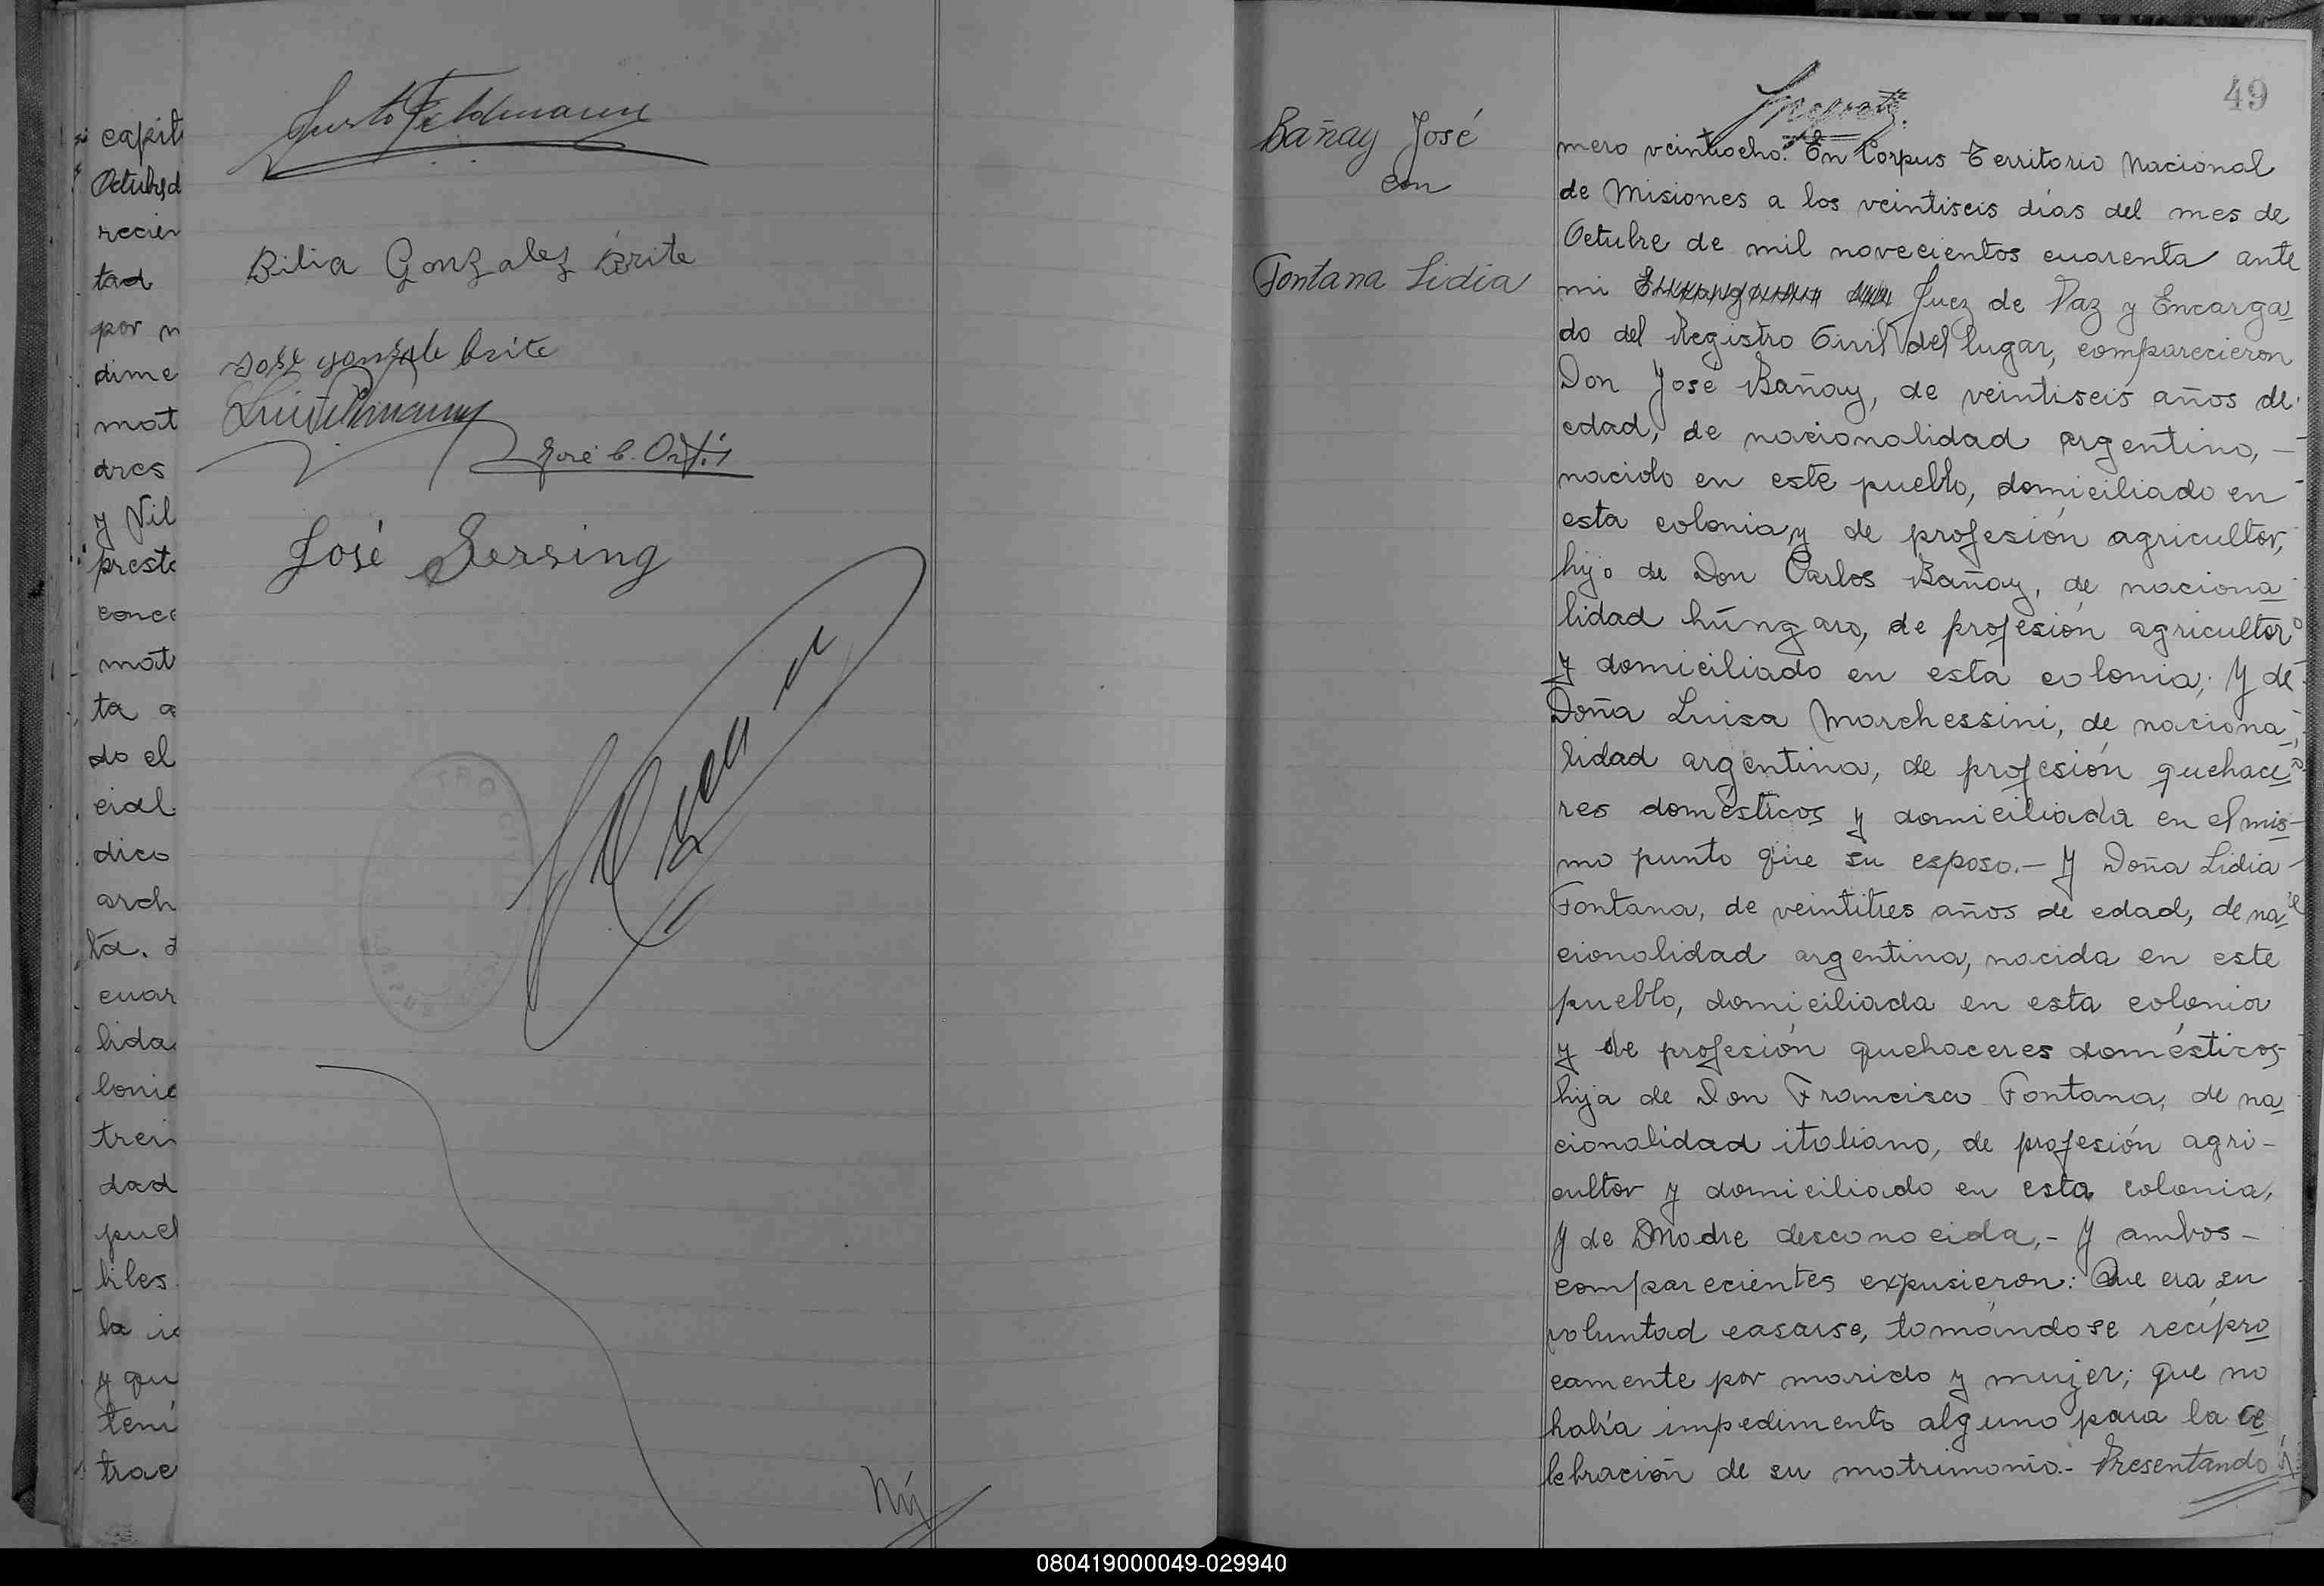 capit
Octubre d
recien
tad
por m
dime
mat
dres
y Vil
presta
conce
mat
ta a
do el
cial
dico
arch
ta.
cuar
lida
lonia
trein
dad
puel
biles
la
y qu
teni
trae
Justo Feldmann
Bilia Gonzalez Brite
José gonzale brite
José C. Ortis
José Sersing
Nú
49
Bañay José
con
Fontana Lidia
mero veintiocho. En Corpus Territorio Nacional
de Misiones a los veintiseis días del mes de
Octubre de mil novecientos cuarenta ante
mi Juez de Paz y Encarga
do del Registro Civil del lugar, comparecieron
Don José Bañay, de veintiseis años de
edad, de nacionalidad argentino, -
nacido en este pueblo, domiciliado en
esta colonia y de profesión agricultor,
hijo de Don Carlos Bañay, de naciona
lidad húngaro, de profesión agricultor
y domiciliado en esta colonia; Y de
Doña Luisa Marchessini, de naciona
lidad argentina, de profesión quehace
res domésticos y domiciliada en el mis
mo punto que su esposo.- Y Doña Lidia
Fontana, de veintitres años de edad, de na
cionalidad argentina, nacida en este
pueblo, domiciliada en esta colonia
y de profesión quehaceres domésticos
hija de Don Francisco Fontana, de na
cionalidad italiano, de profesión agri-
cultor y domiciliado en esta colonia,
Y de Madre desconocida,- Y ambos -
comparecientes expusieron: Que era su
voluntad casarse, tomándose recípro
camente por marido y mujer; que no
había impedimento alguno para la ce
lebración de su matrimonio.- Presentando
080419000049-029940